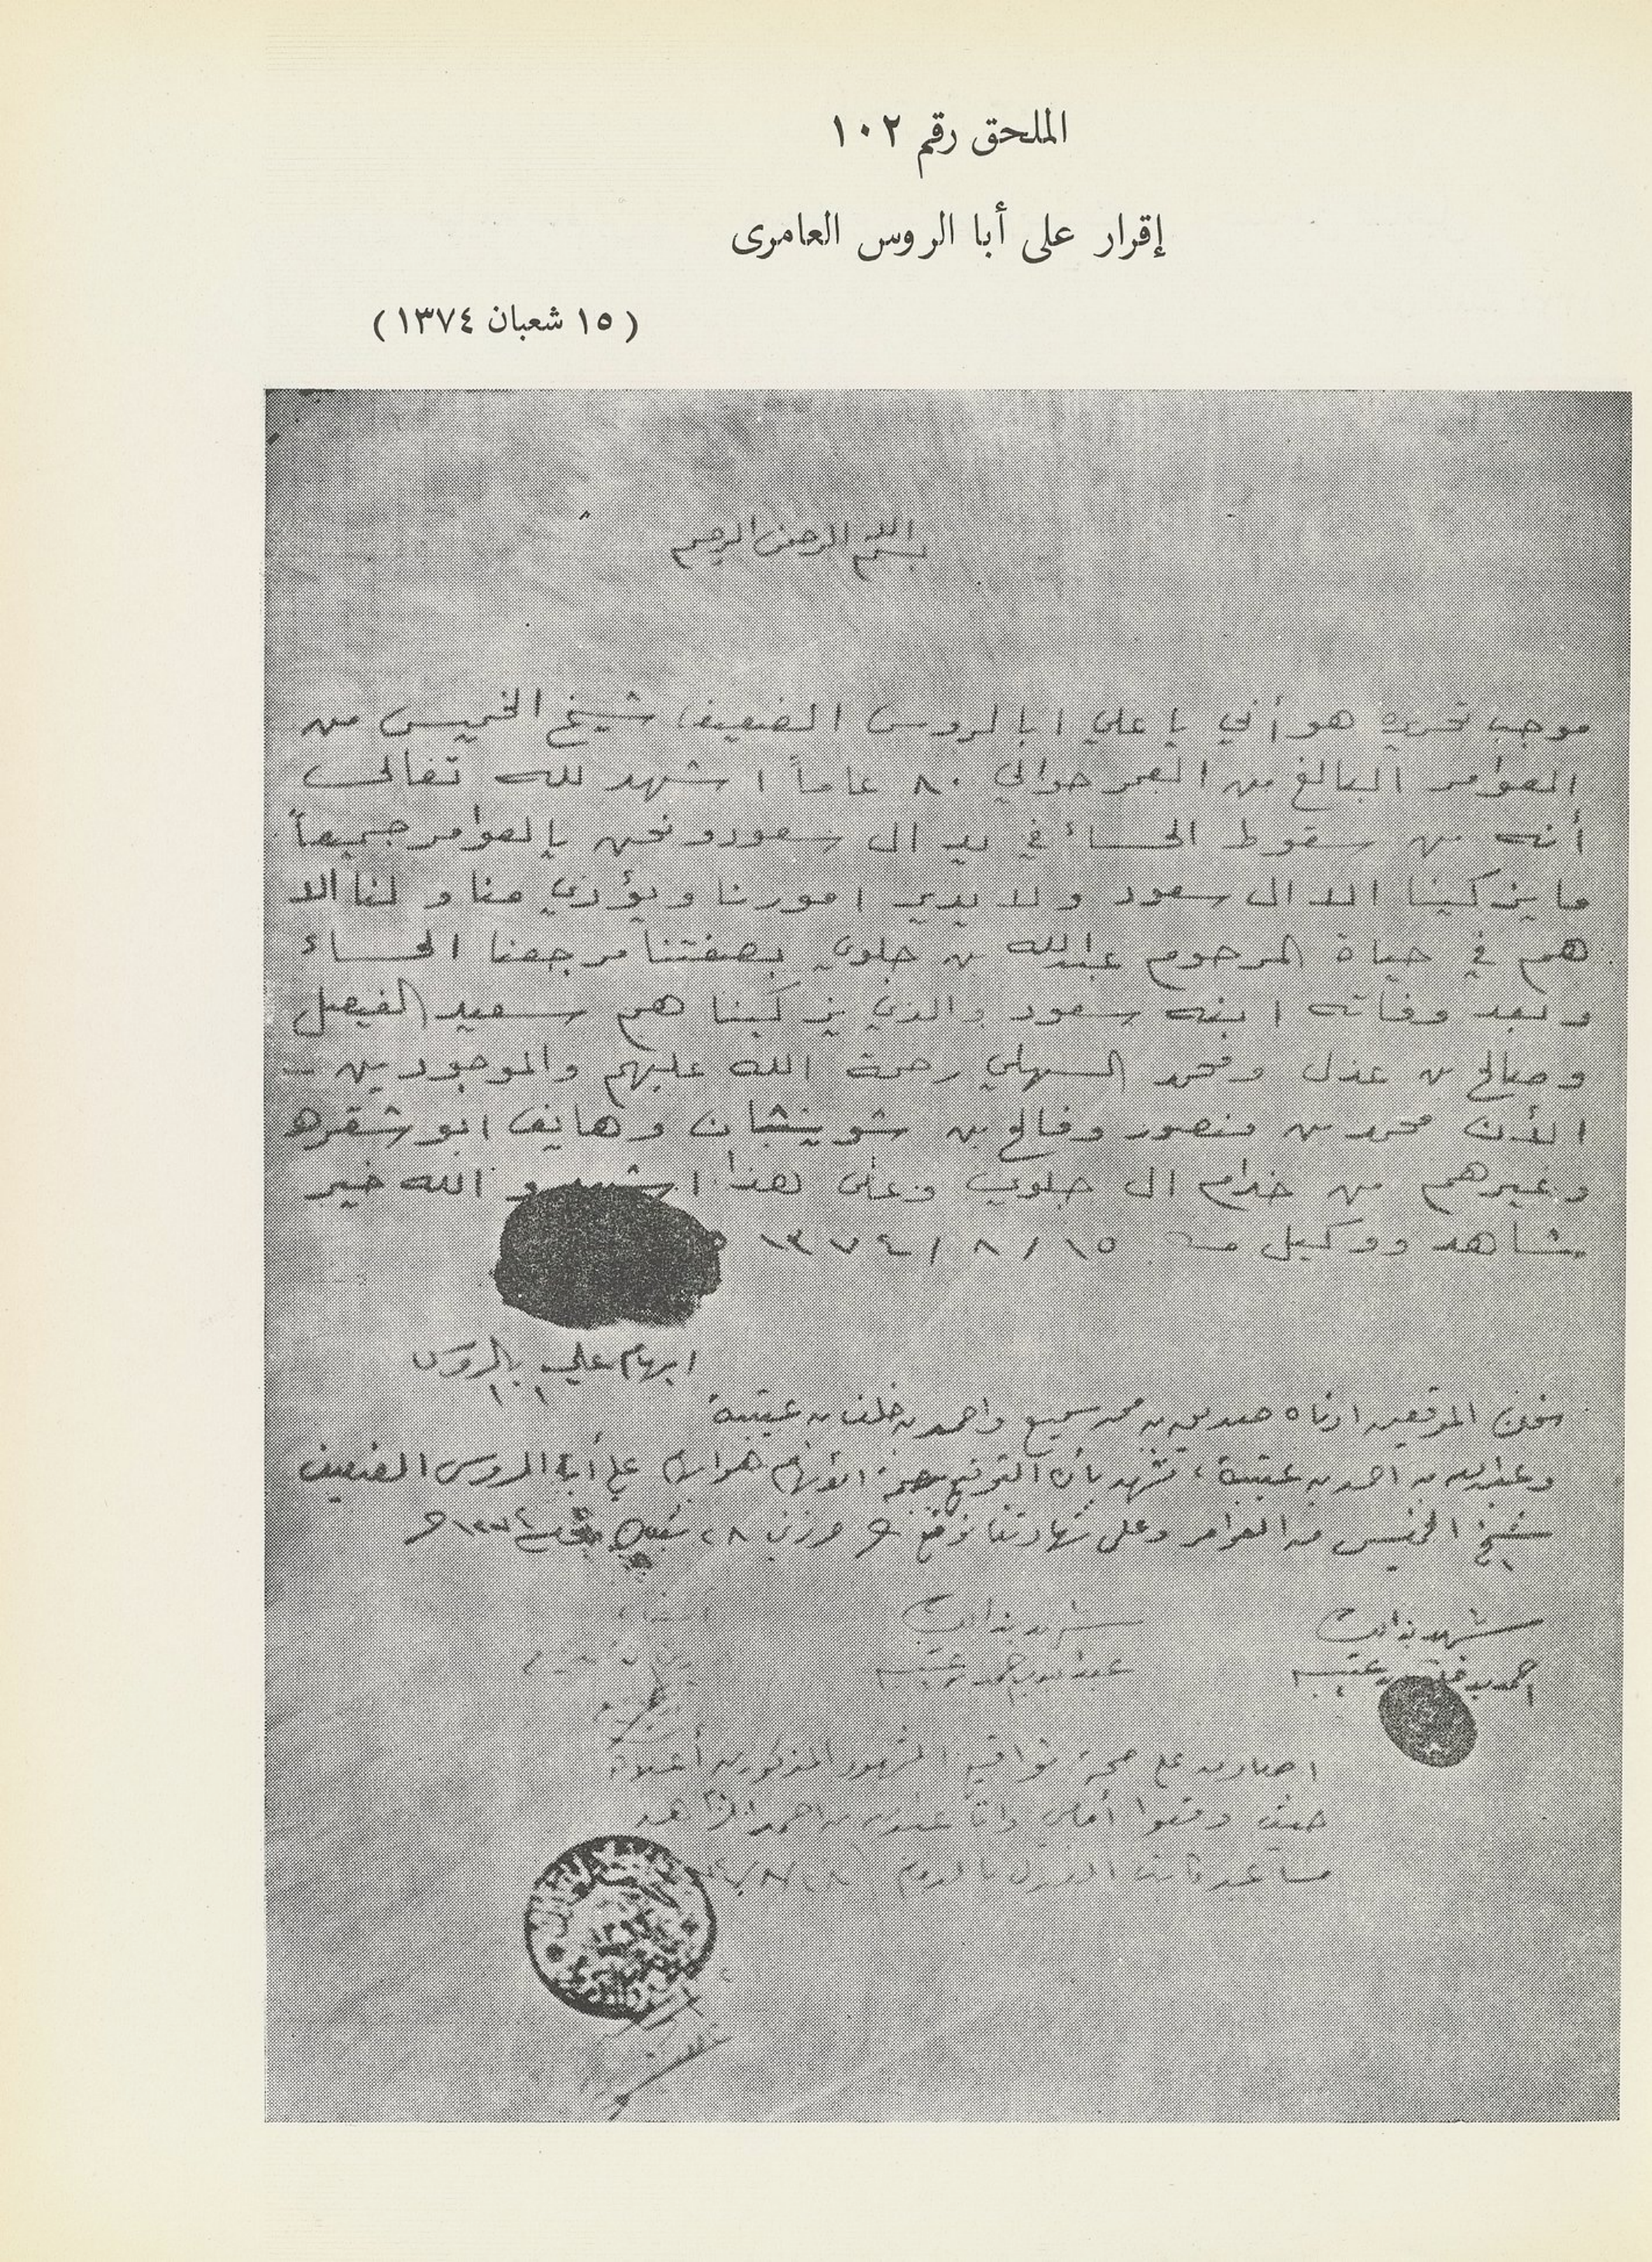 الملحق رقم ١٠٢
إقرار على أبا الروس العامرى
( ١٥ شعبان ١٣٧٤ )
بسم الله الرحمن الرحيم
موجب تحريره هو أني يا علي ابا لروس الضعيف شيخ الخميس من
العوامر البالغ من العمر حوالي ٨٠ عاماً اشهد لله تعالى
أنه من سقوط الحساء في يد ال سعود ونحن يا لعوامر جميعاً
ما يزكينا الا ال سعود ولا يدير امورنا ويؤدي منا و لنا الا
هم في حياة المرحوم عبدالله بن جلوي بصفتنا مرجعنا الحساء
وبعد وفاته ابنه سعود والذي يزكينا هم سعيد الفيصل
وصالح بن عذل ومحمد السهلي رحمة الله عليهم والموجودين
الأن محمد بن منصور وفالح بن شوينان وهايف ابو شقره
وغيرهم من خدام ال جلوي وعلى هذا اشهد و الله خير
شاهد ووكيل ١٥ / ٨ / ١٣٧٤
ابهام علي بالروس
نحن الموقعين ادناه بن محمد سميع واحمد بن خلف بن عتيبة
وعبدالله بن احمد بن عتيبة نشهد بأن التوقيع ابهام هو ابهام علي أبا الروس الضعيف
شيخ الخميس من العوامر وعلى شهادتنا نوقع ٢٨
شهد بذالك
احمد بن خلف بن عتيبه
شهد بذالك
عبدالله بن احمد بن عتيبه
اصادق على صحة تواقيع الشهود المذكورين أعلاه
حيث وقعوا أمامي وانا عبدالله بن احمد
مساعد كاتب العدل بالدمام